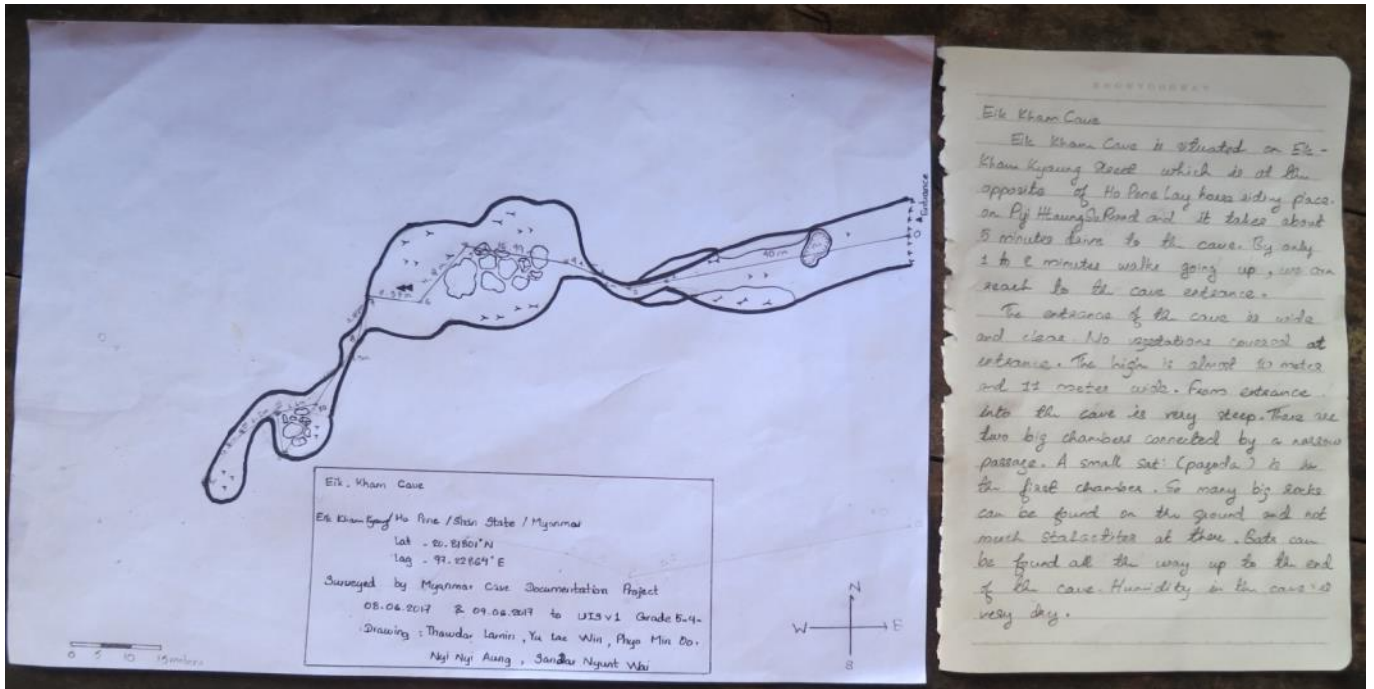 Entrance
0
40 m
Eik Kham Cave
Eik Kham Kyaung / Ho Pone / Shan State / Myanmar
Lat - 20.81801° N
Lag - 97.22864° E
Surveyed by Myanmar Cave Documentation Project
08.06.2017 & 09.06.2017 to UISv1 Grade 5-4-
Drawing : Thawdar Lamin, Yu Lae Win, Phyo Min Oo.
Nyi Nyi Aung, Sandar Nyunt Wai
0 5 10 15 meters
N
W E
S
Eik Kham Cave
Eik Kham Cave is situated on Eik-
Kham Kyaung Street which is at the
opposite of Ho Pone Lay horse riding place.
on Pyi Htaung Su Road and it takes about
5 minutes drive to the cave. By only
1 to 2 minutes walks going up, we can
reach to the cave entrance.
The entrance of the cave is wide
and clear. No vegetations covered at
entrance. The high is almost 10 meter
and 11 meter wide. From entrance
into the cave is very steep. There are
two big chambers connected by a narrow
passage. A small sati (pagoda) is in
the first chamber. So many big rocks
can be found on the ground and not
much stalactites at there. Bats can
be found all the way up to the end
of the cave. Humidity in the cave is
very dry.